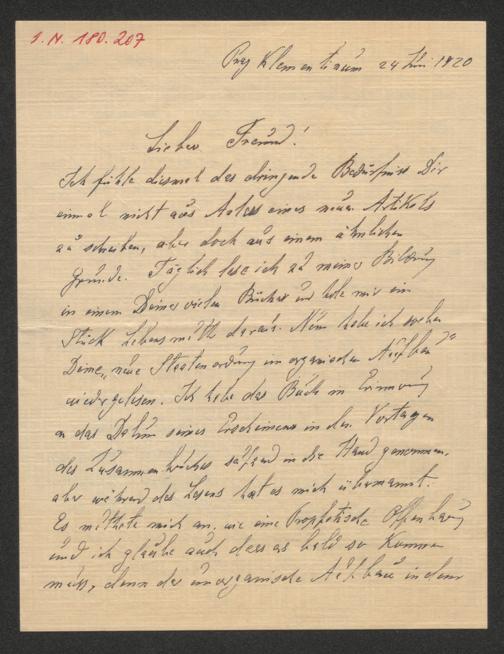 I. N. 180.207
Prag Klementinum 24 Juni 1920
Lieber Freund!
Ich fühle diesmal das dringende Bedürfniss Dir
einmal nicht aus Anlass eines neuen Artikels
zu schreiben, aber doch aus einem ähnlichen
Grunde. Täglich lese ich zu meiner Bildung
in einem Deiner vielen Bücher und hole mir ein
Stück Lebensmuth daraus. Nun habe ich soeben
Deine „neue Staatenordnung im organischen Aufbau"
wiedergelesen. Ich habe das Buch in Erinnerung
an das Datum seines Erscheinens in den Vortagen
des Zusammenbruches seufzend in die Hand genommen,
aber während des Lesens hat es mich übermannt.
Es muthete mich an, wie eine Prophetische Offenbarung
und ich glaube auch dass es bald so kommen
muss, denn der unorganische Aufbau in dem